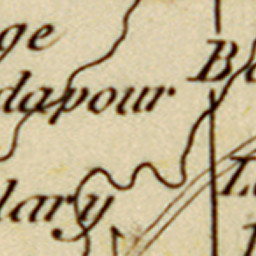 ge
dapour
B
lary
L